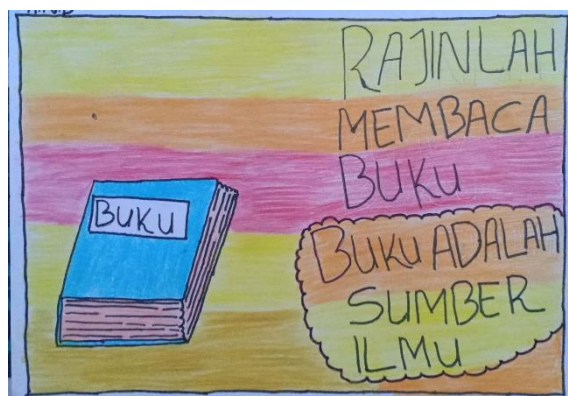 RAJINLAH
MEMBACA
BUKU
BUKU
BUKU ADALAH
SUMBER
ILMU